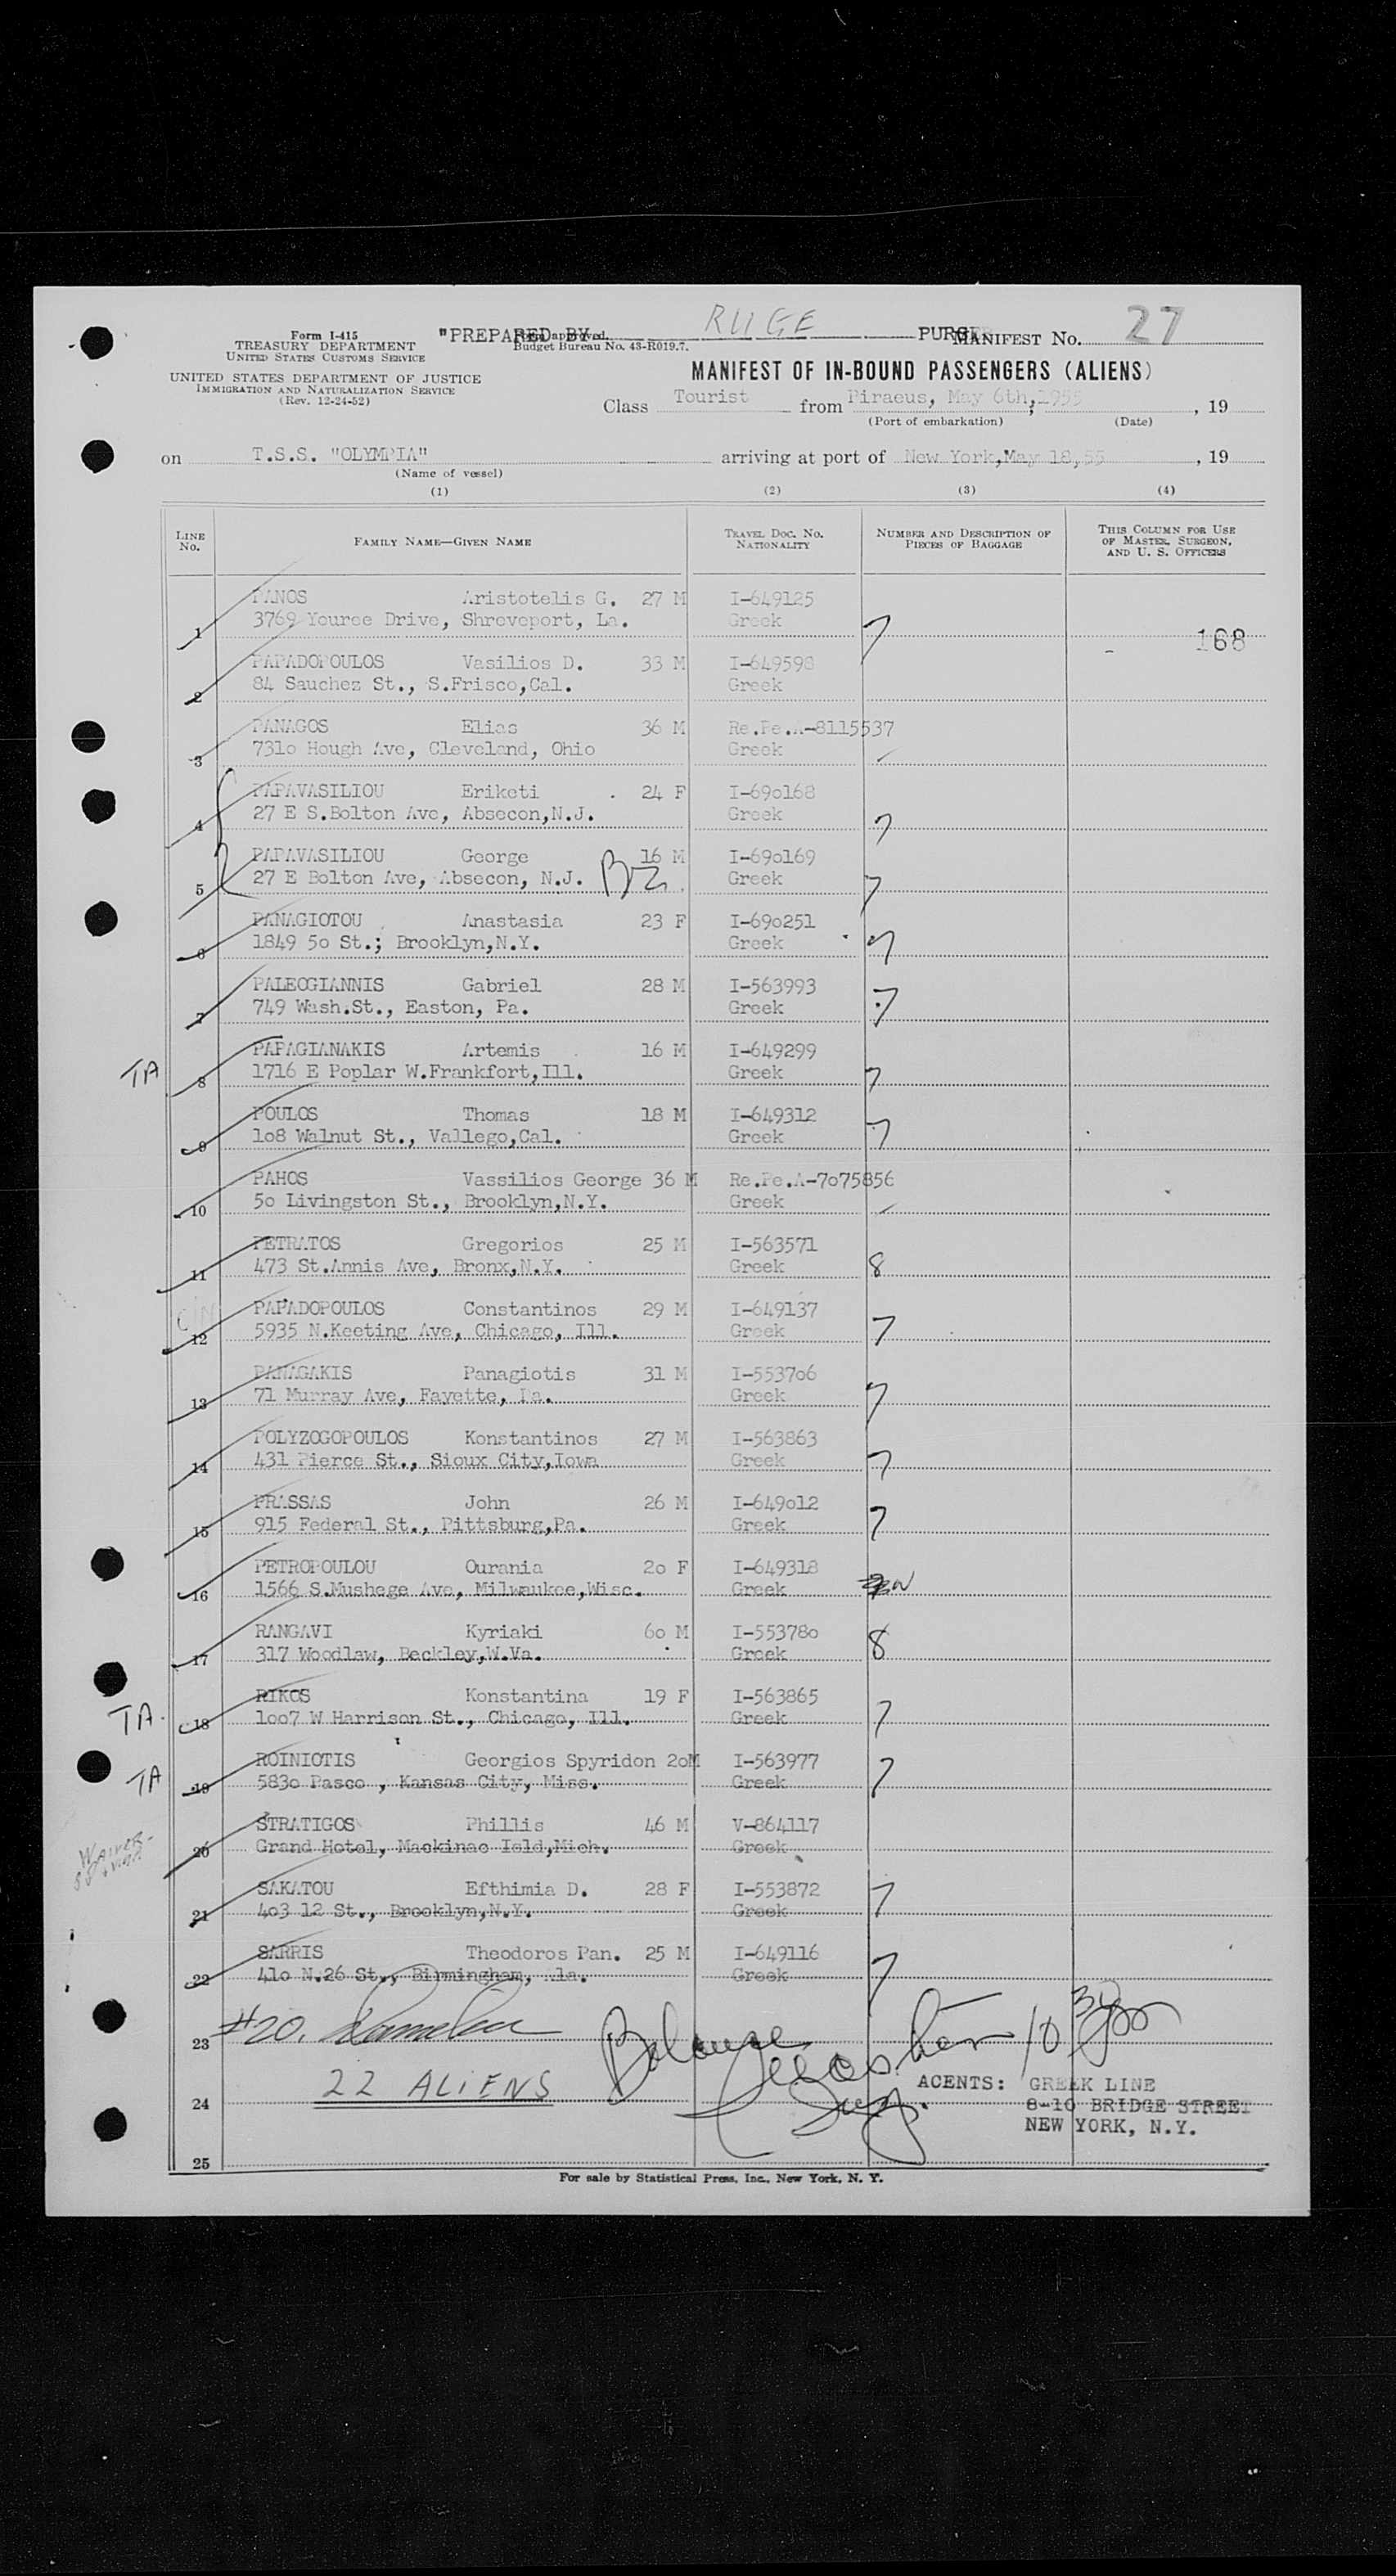 Form I-415
TREASURY DEPARTMENT
UNITED STATES CUSTOMS SERVICE
UNITED STATES DEPARTMENT OF JUSTICE
IMMIGRATION AND NATURALIZATION SERVICE
(Rev. 12-24-52)
"PREPARED BY RUGE PURSER
Form approved.
Budget Bureau No. 43-R019.7.
MANIFEST No. 27
MANIFEST OF IN-BOUND PASSENGERS (ALIENS)
Class Tourist from Piraeus, May 6th,1955, 19
(Port of embarkation) (Date)
on T.S.S. "OLYMPIA" arriving at port of New York,May 18,55, 19
(Name of vessel)
(1) (2) (3) (4)
LINE No. FAMILY NAME—GIVEN NAME TRAVEL DOC. No. NATIONALITY NUMBER AND DESCRIPTION OF PIECES OF BAGGAGE THIS COLUMN FOR USE OF MASTER, SURGEON, AND U. S. OFFICERS
PANOS Aristotelis G. 27 M I-649125
1 3769 Youree Drive, Shreveport, La. Greek 7 168
PAPADOPOULOS Vasilios D. 33 M I-649598
2 84 Sauchez St., S.Frisco,Cal. Greek
PANAGOS Elias 36 M Re.Pe.A-8115537
3 731o Hough Ave, Cleveland, Ohio Greek
PAPAVASILIOU Eriketi 24 F I-69o168
4 27 E S.Bolton Ave, Absecon,N.J. Greek 7
PAPAVASILIOU George 16 M I-69o169
5 27 E Bolton Ave, Absecon, N.J. Greek 7
PANAGIOTOU Anastasia 23 F I-69o251
6 1849 5o St.; Brooklyn,N.Y. Greek 7
PALEOGIANNIS Gabriel 28 M I-563993
7 749 Wash.St., Easton, Pa. Greek 7
PAPAGIANAKIS Artemis 16 M I-649299
TA 8 1716 E Poplar W.Frankfort,Ill. Greek 7
POULOS Thomas 18 M I-649312
9 1o8 Walnut St., Vallego,Cal. Greek 7
PAHOS Vassilios George 36 M Re.Pe.A-7o75856
10 5o Livingston St., Brooklyn,N.Y. Greek
PETRATOS Gregorios 25 M I-563571
11 473 St.Annis Ave, Bronx,N.Y. Greek 8
PAPADOPOULOS Constantinos 29 M I-649137
12 5935 N.Keeting Ave, Chicago, Ill. Greek 7
PANAGAKIS Panagiotis 31 M I-5537o6
13 71 Murray Ave, Fayette, Greek 7
POLYZOGOPOULOS Konstantinos 27 M I-563863
14 431 Pierce St., Sioux City,Iowa Greek 7
PRASSAS John 26 M I-649o12
15 915 Federal St., Pittsburg,Pa. Greek 7
PETROPOULOU Ourania 2o F I-649318
16 1566 S.Mushege Ave, Milwaukee,Wisc. Greek
RANGAVI Kyriaki 6o M I-55378o
17 317 Woodlaw, Beckley,W.Va. Greek 8
RIKOS Konstantina 19 F I-563865
TA. 18 1oo7 W Harrison St., Chicago, Ill. Greek 7
ROINIOTIS Georgios Spyridon 2oM I-563977
TA 19 583o Pasco , Kansas City, Miss. Greek 7
STRATIGOS Phillis 46 M V-864117
20 Grand Hotel, Mackinac Isld,Mich. Greek
SAKATOU Efthimia D. 28 F I-553872
21 4o3 12 St., Brooklyn,N.Y. Greek 7
SARRIS Theodoros Pan. 25 M I-649116
22 41o N.26 St., Birmingham, Greek 7
23 #20.
24 22 ALIENS
AGENTS: GREEK LINE
8-10 BRIDGE STREET
NEW YORK, N.Y.
25
For sale by Statistical Press, Inc., New York, N. Y.